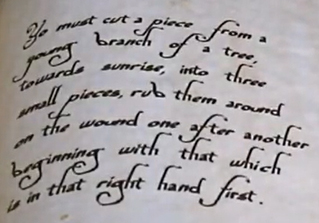 Ye must cut a piece from a
young branch of a tree,
towards sunrise, into three
small pieces, rub them around
on the wound one after another
beginning with that which
is in that right hand first.